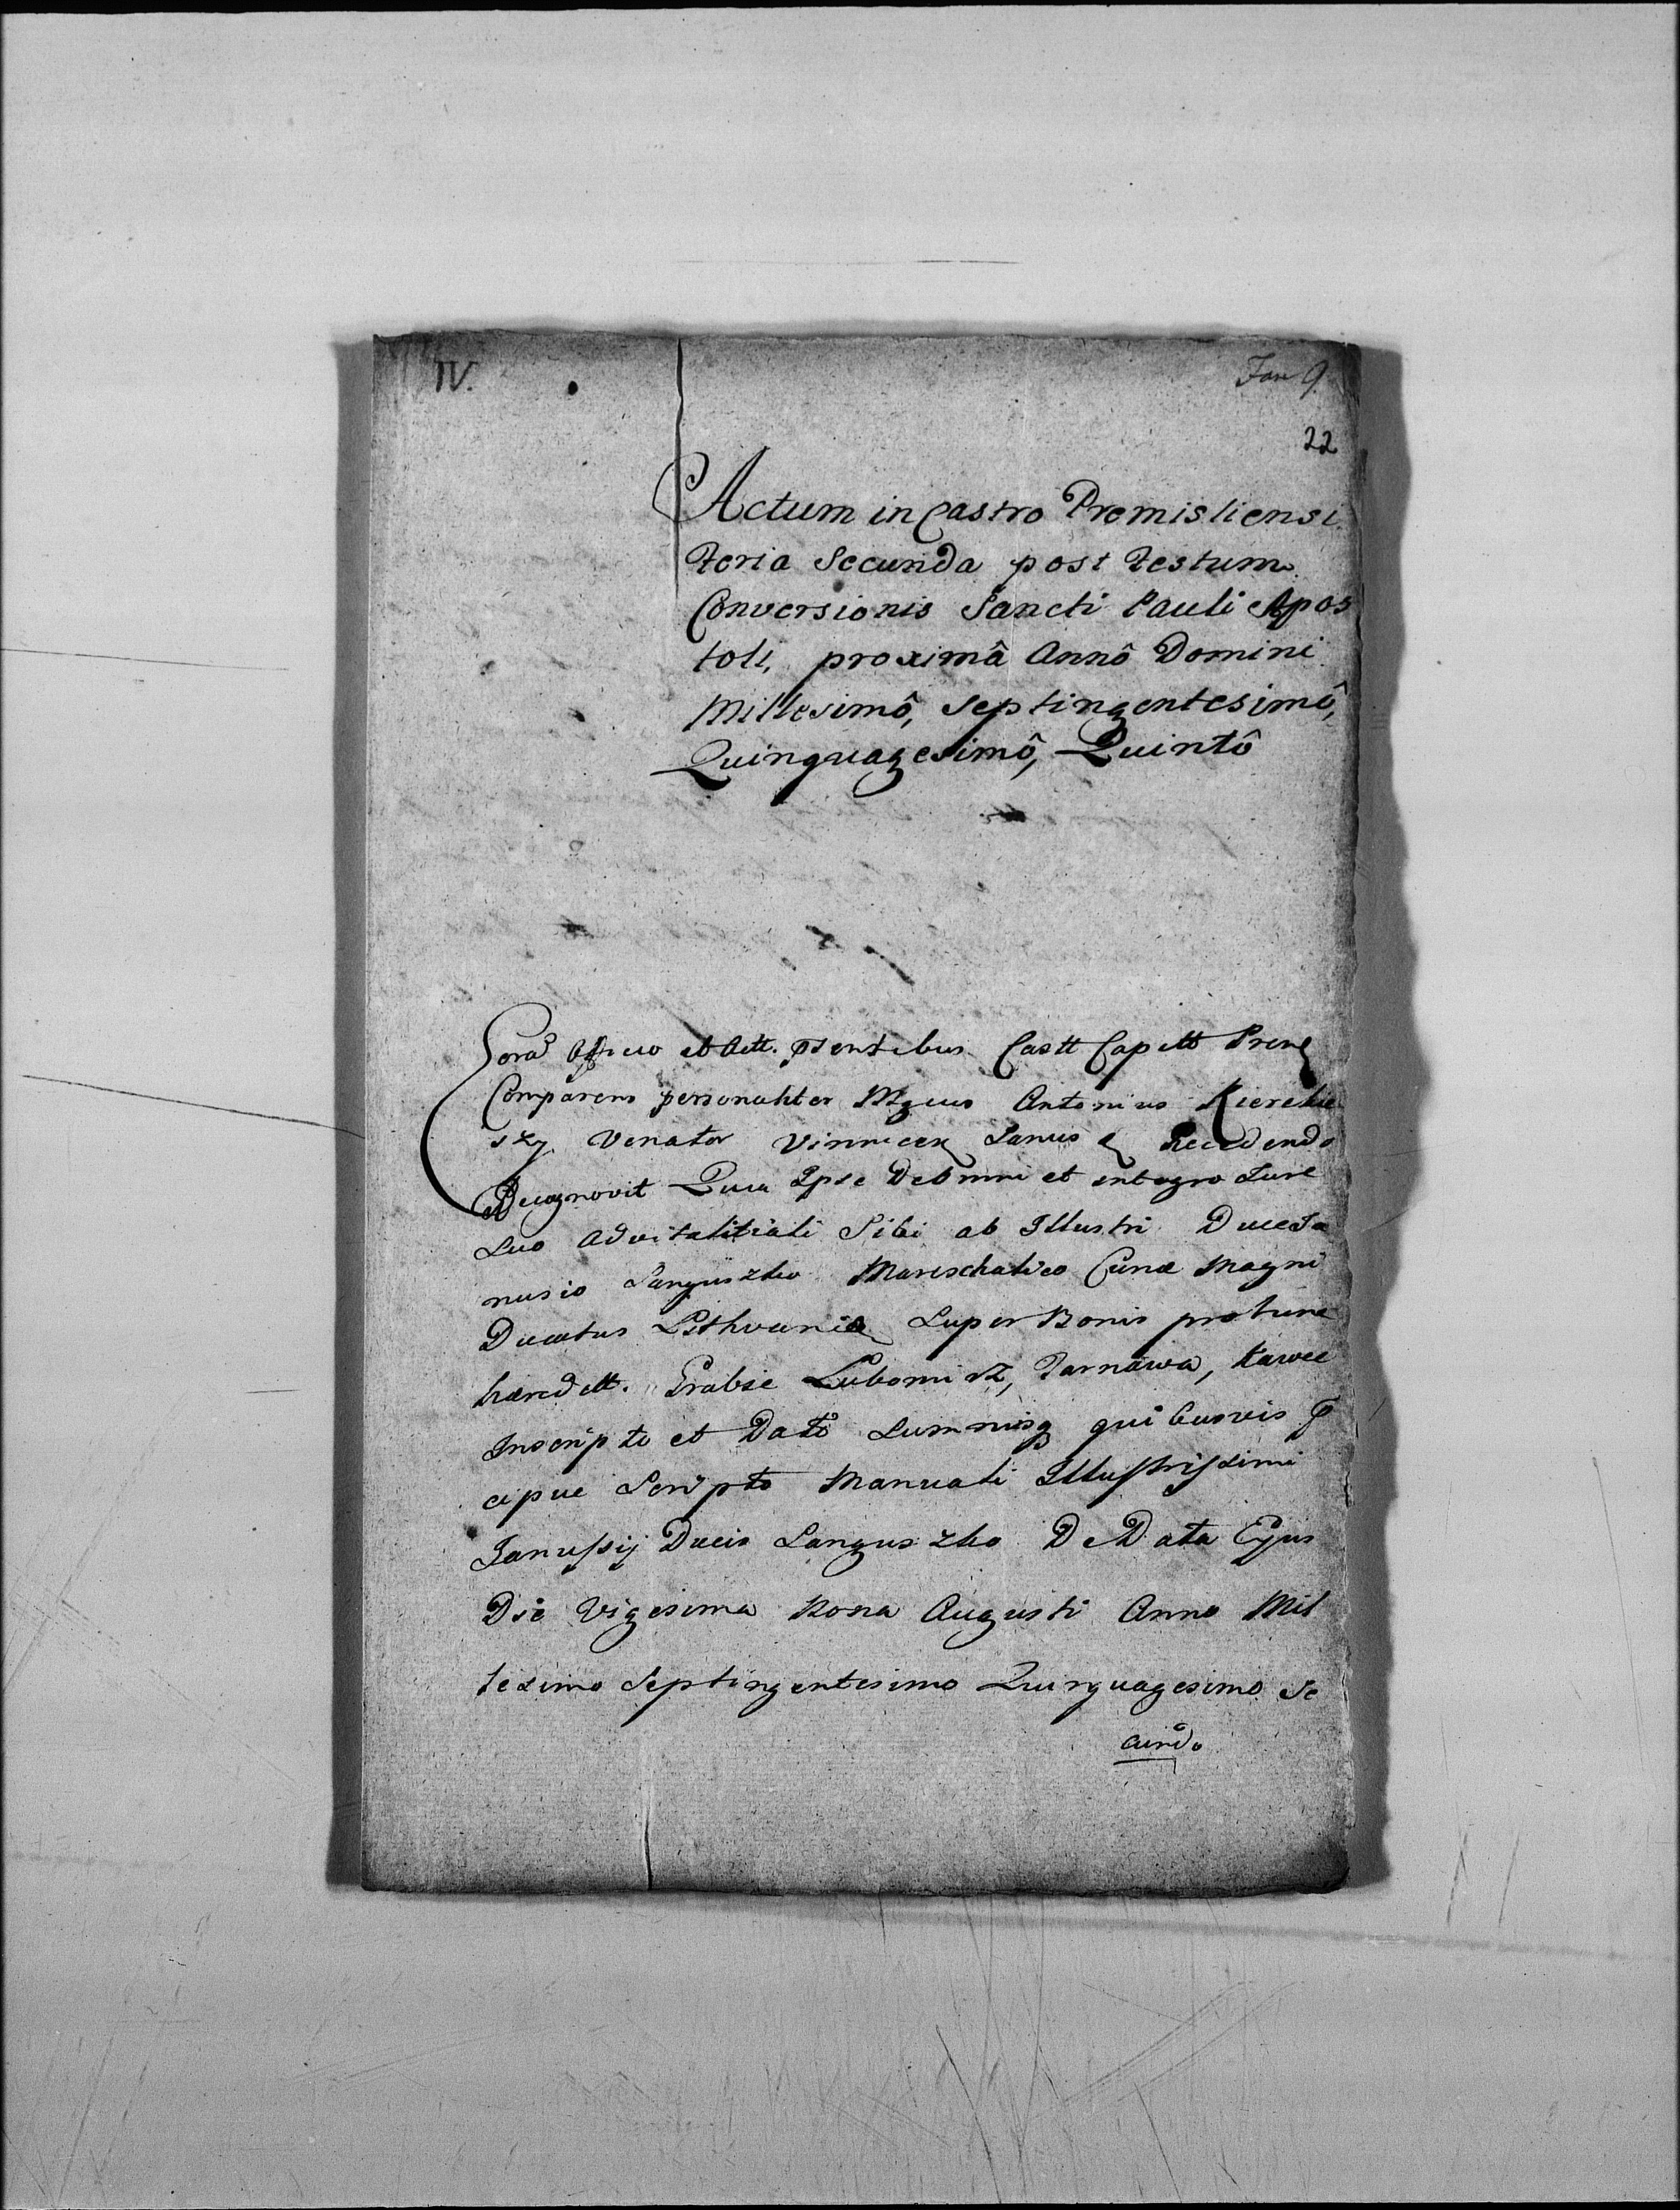 IV.
Fan 9.
22
Actum in Castro Premisliensi
Feria Secunda post Festum
Conversionis Sancti Pauli Apos
toli, proximâ Annô Domini
Millesimô, Septingentesimô,
Quinquagesimô, Quintô
Coram Officio et Actt. pntibus Castt Capitt
Comparens personaliter Mgcus Antonius
Venator Sanus Recedendo
Recognovit Quia Ipse De Omni et integro Jure
Suo Advitalitiali Sibi ab Illustri Duce Ja
nusio Sanguszko Marschalco Curiæ Magni
Ducatus Lithvaniæ Super Bonis pro tunc
hæredtt. Grabie Lubomirz, Tarnawa, Kawec
Inscripto et Datô Summisq quibusvis
cipue Scripto Manuali Illustrissimi
Janussij Ducis Sanguszko De Data Ejus
Die Vigesima Nona Augusti Anno Mil
lesimo Septingentesimo Quinquagesimo Se
cundo